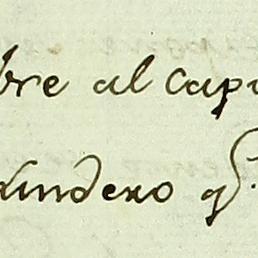 bre al capi
xandero q.